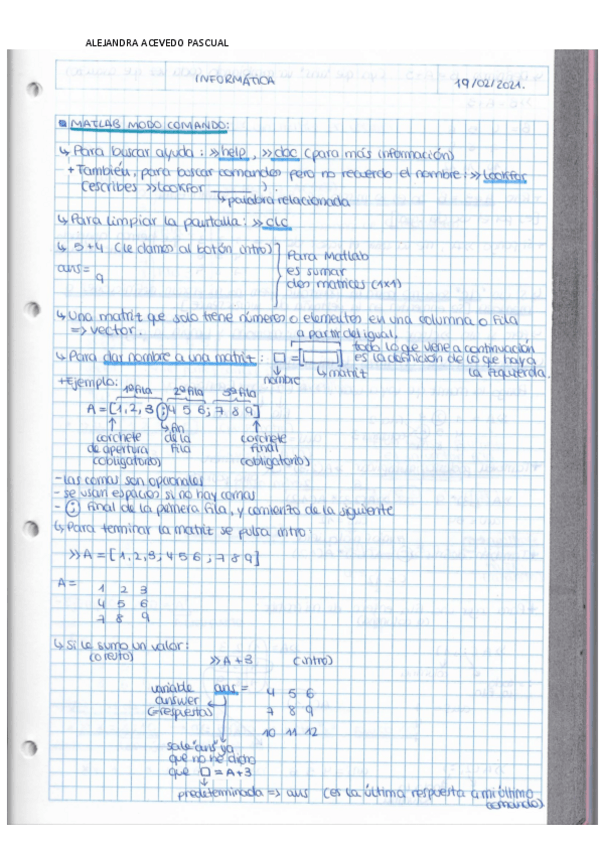 ALEJANDRA ACEVEDO PASCUAL
INFORMÁTICA
19/02/2021.
MATLAB MODO COMANDO:
↳ Para buscar ayuda: »help, »doc (para más información)
+ También, para buscar comandos pero no recuerdo el nombre: »lookfor
(escribes »lookfor ______ ).
↳ palabra relacionada
↳ Para limpiar la pantalla: »clc
↳ 5+4 (le damos al botón intro)
ans=
9
Para Matlab
es sumar
dos matrices (1x1)
↳ Una matriz que solo tiene números o elementos en una columna o fila
=> vector.
a partir del igual,
todo lo que viene a continuación
es la definición de lo que haya
la izquierda.
↳ Para dar nombre a una matriz: □ = [ ]
↓ nombre
↳ matriz
+ Ejemplo:
1ª Fila 2ª Fila 3ª Fila
A = [1,2,3 ; 4 5 6; 7 8 9]
corchete
de apertura
(obligatorio)
↳ fin
de la
fila
corchete
final
(obligatorio)
- las comas son opcionales
- se usan espacios si no hay comas
- ; final de la primera fila, y comienzo de la siguiente
↳ Para terminar la matriz se pulsa intro
»A = [1,2,3; 4 5 6; 7 8 9]
A=
1 2 3
4 5 6
7 8 9
↳ Si le sumo un valor:
(o resto)
»A+3 (intro)
variable
answer
(=respuestas)
ans =
4 5 6
7 8 9
10 11 12
sale "ans" ya
que no he dicho
que □ = A+3
predeterminada => ans (es la última respuesta a mi último
comando)